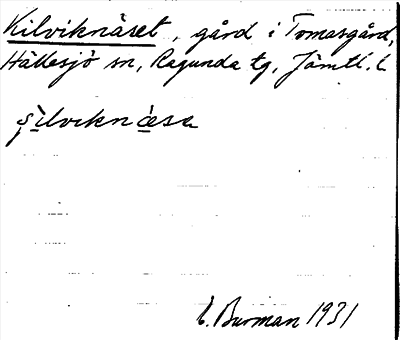 Kilviknäset, gård i Tomasgård,
Hällesjö sn, Ragunda tg, Jämtl. l
ʂ̀ilviknæ̀sα
C. Burman 1931